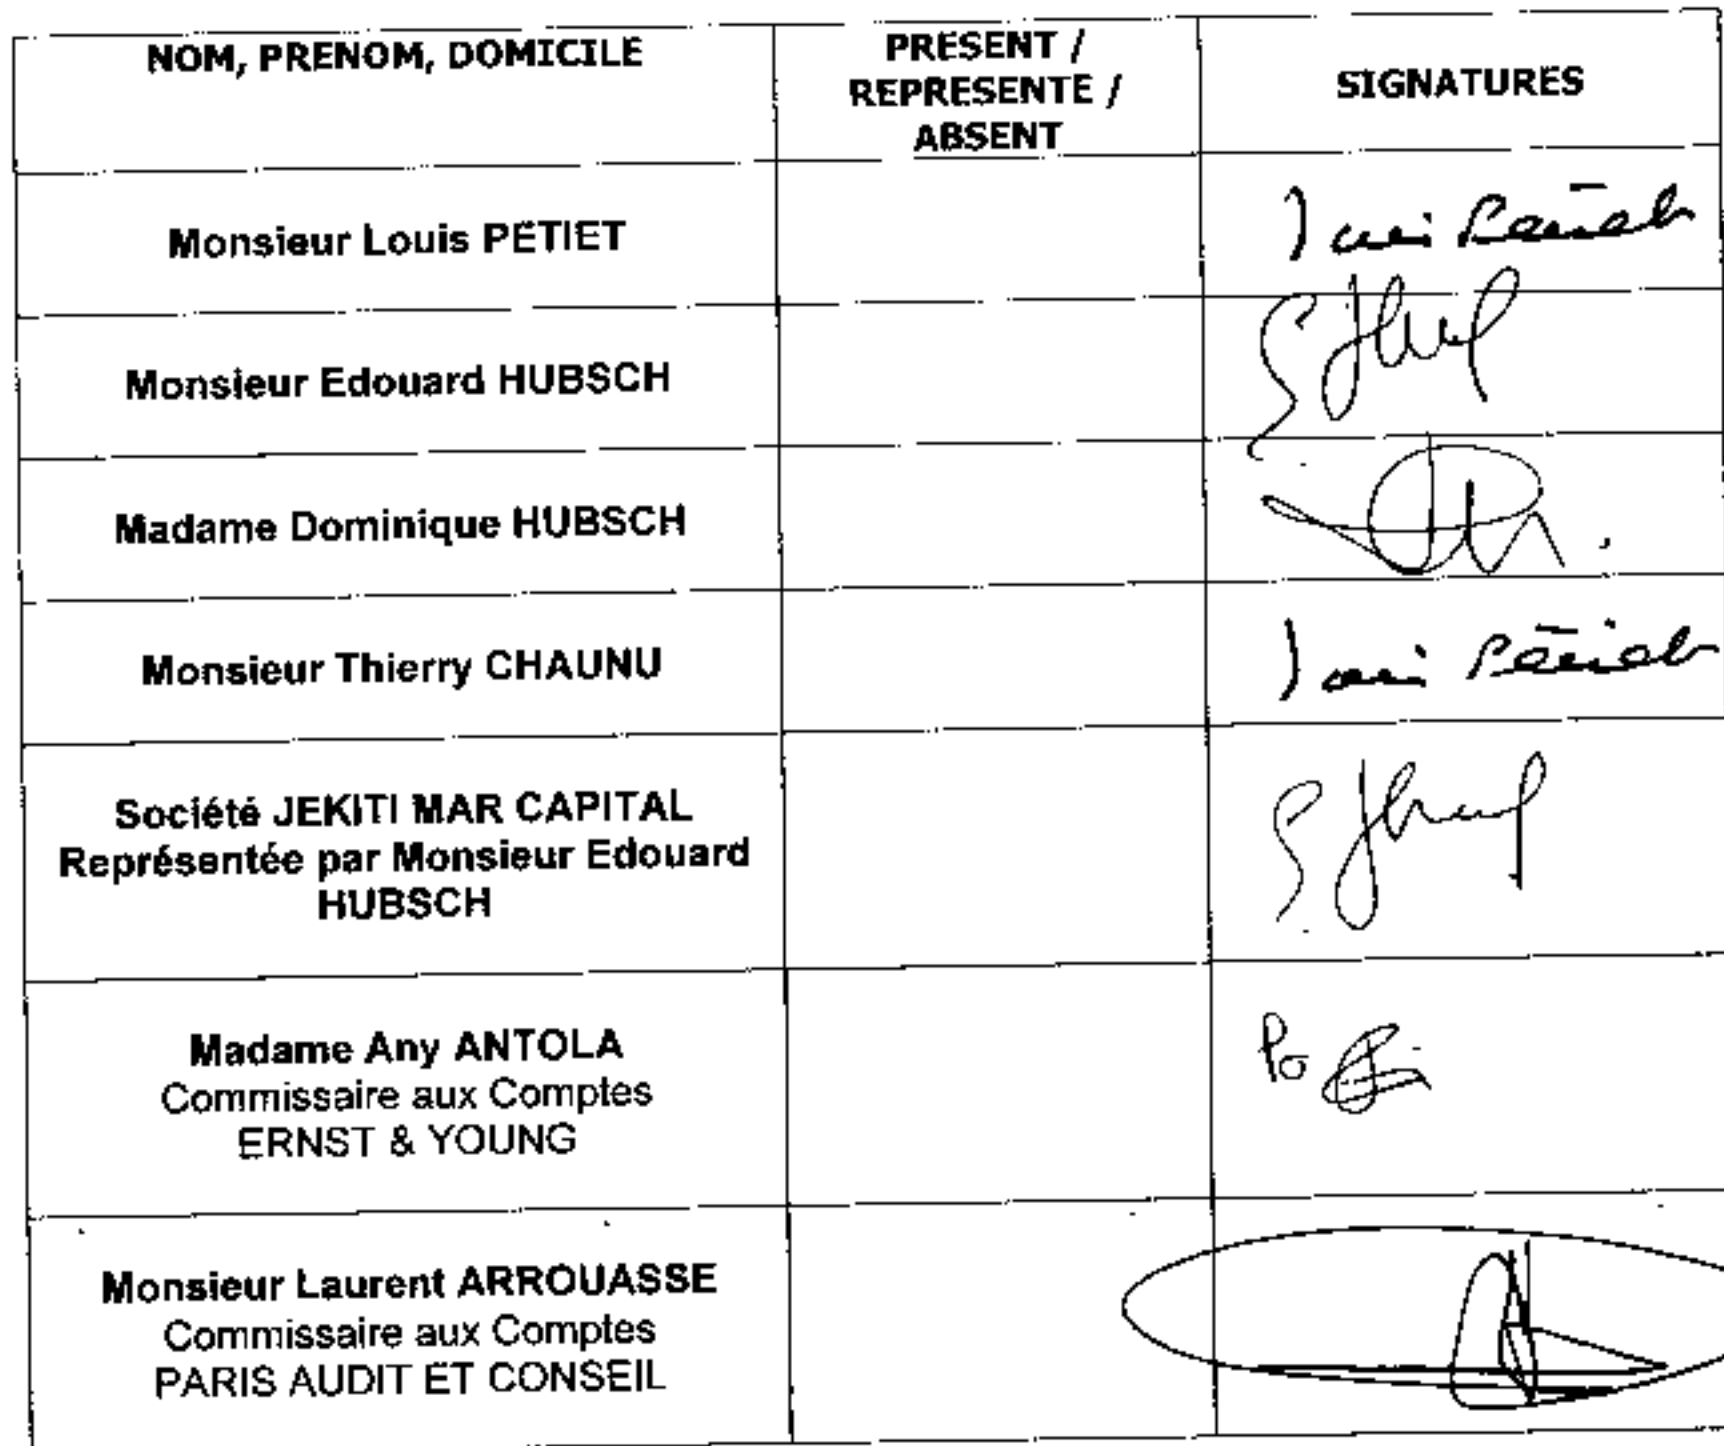 NOM, PRENOM, DOMICILE
PRESENT /
REPRESENTE /
ABSENT
SIGNATURES
Monsieur Louis PETIET
Monsieur Edouard HUBSCH
Madame Dominique HUBSCH
Monsieur Thierry CHAUNU
Société JEKITI MAR CAPITAL
Représentée par Monsieur Edouard
HUBSCH
Madame Any ANTOLA
Commissaire aux Comptes
ERNST & YOUNG
Po
Monsieur Laurent ARROUASSE
Commissaire aux Comptes
PARIS AUDIT ET CONSEIL